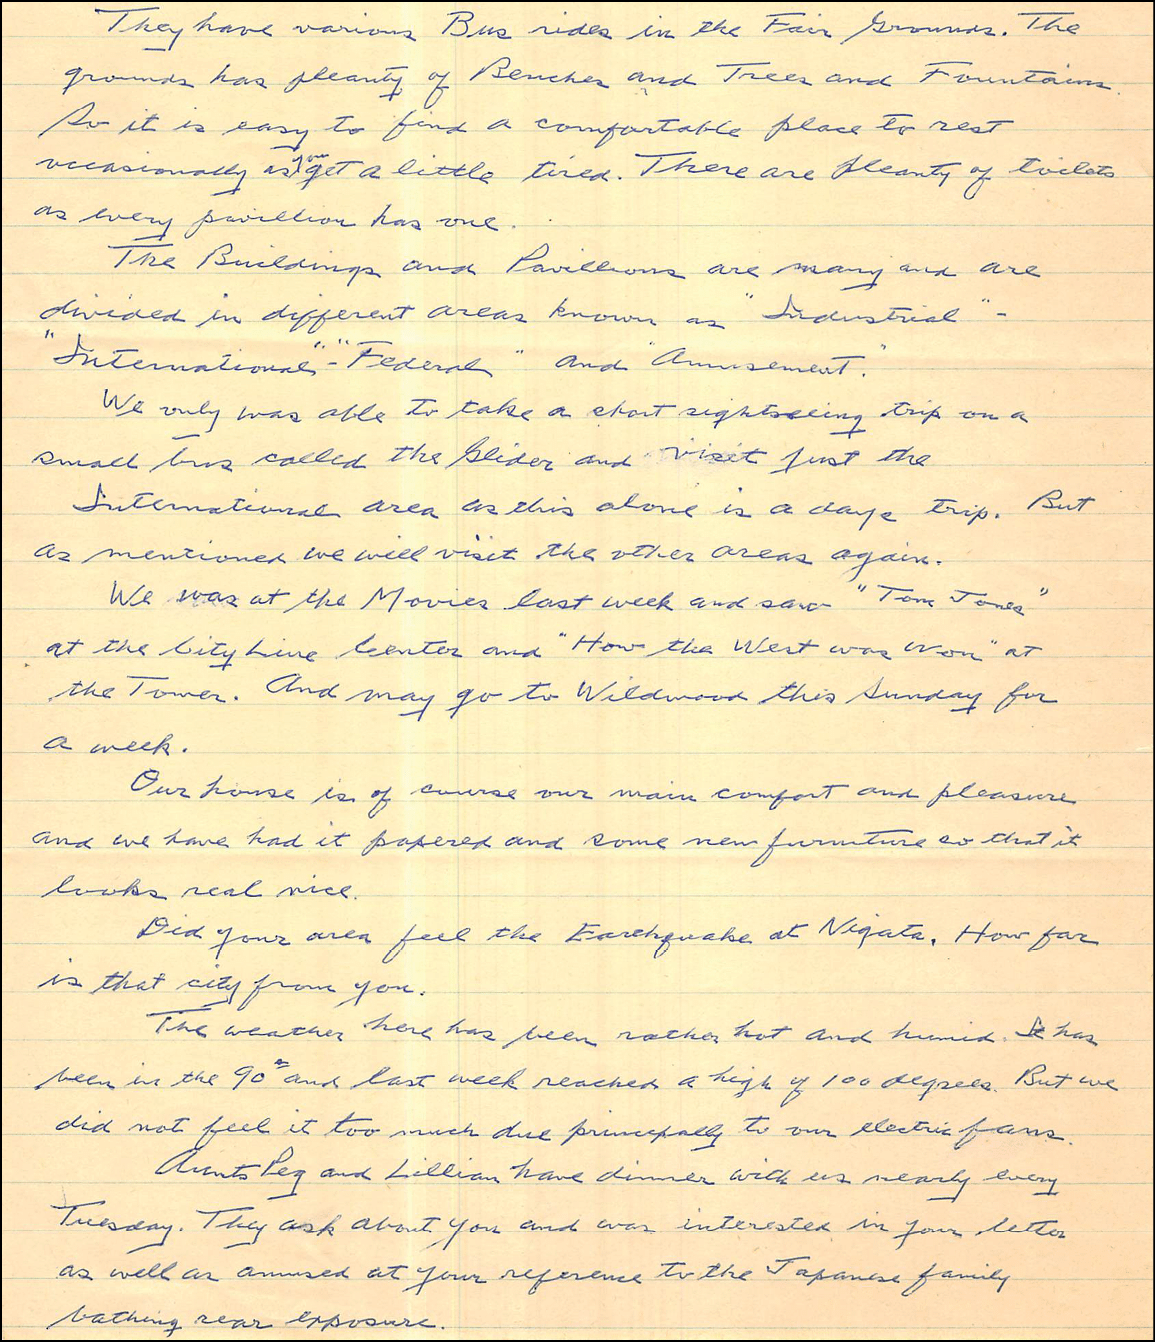 They have various Bus rides in the Fair Grounds. The
grounds has pleanty of Benches and Trees and Fountains.
So it is easy to find a comfortable place to rest
occasionally as you get a little tired. There are pleanty of toilets
as every pavillion has one.
The Buildings and Pavillions are many and are
divided in different areas known as "Industrial" -
"International" - "Federal" and "Amusement."
We only was able to take a short sightseeing trip on a
small bus called the Glider and visit just the
International area as this alone is a days trip. But
as mentioned we will visit the other areas again.
We was at the Movies last week and saw "Tom Jones"
at the City Line Center and "How the West was Won" at
the Tower. And may go to Wildwood this Sunday for
a week.
Our house is of course our main comfort and pleasure
and we have had it papered and some new furniture so that it
looks real nice.
Did your area feel the Earthquake at Nigata. How far
is that city from you.
The weather here has been rather hot and humid. It has
been in the 90s and last week reached a high of 100 degrees. But we
did not feel it too much due principally to our electric fans.
Aunts Peg and Lillian have dinner with us nearly every
Tuesday. They ask about you and was interested in your letter
as well as amused at your reference to the Japanese family
bathing rear exposure.